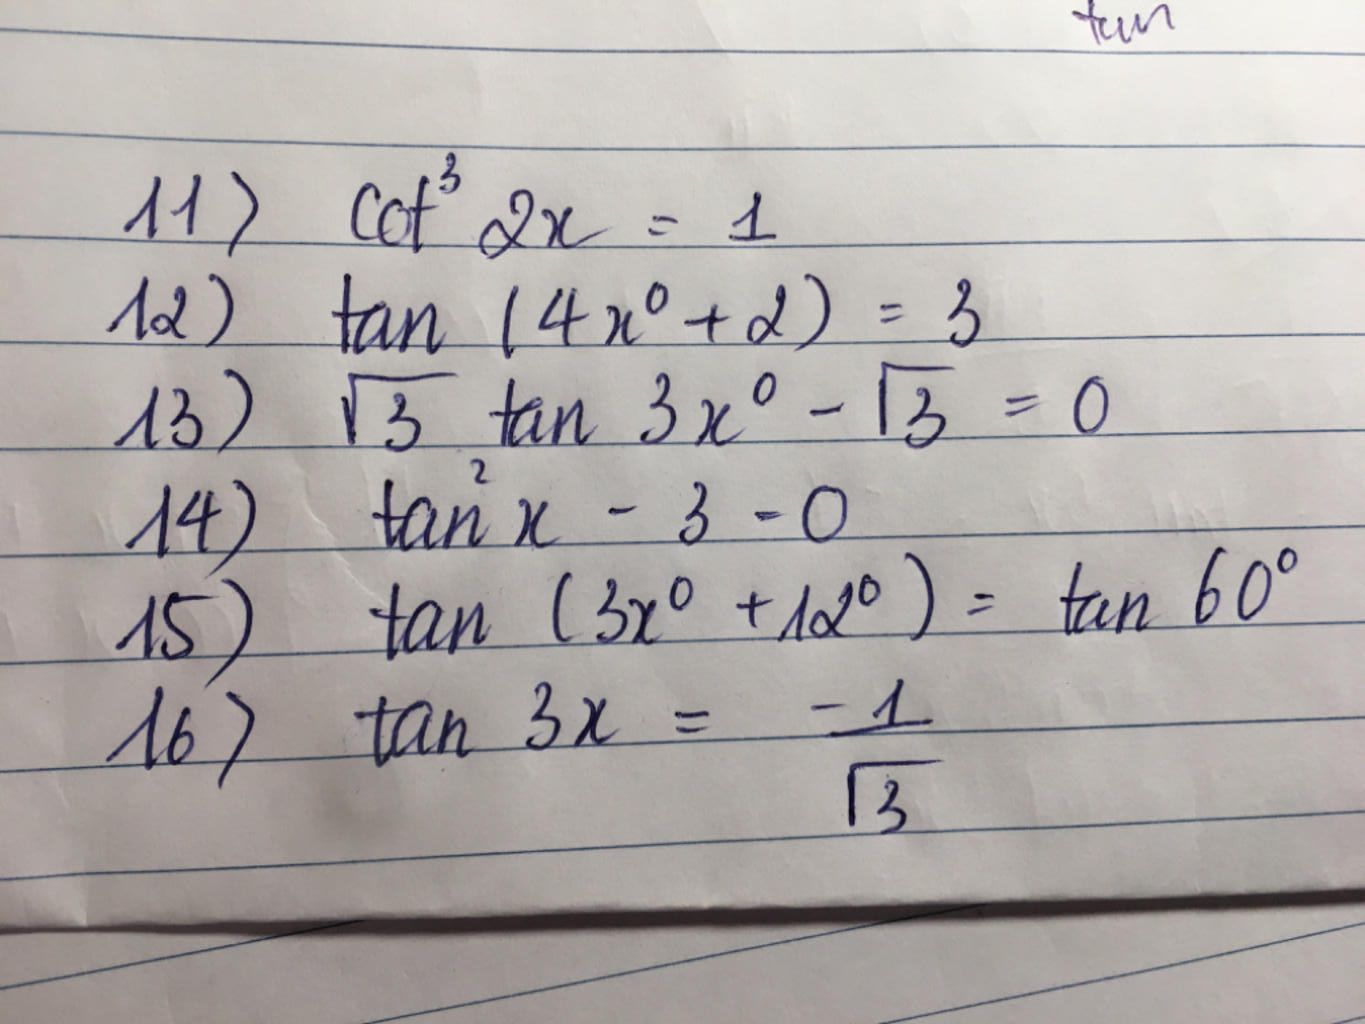 tan
11) cot³ 2x = 1
12) tan (4x⁰ + 2) = 3
13) √3 tan 3x⁰ - √3 = 0
14) tan² x - 3 - 0
15) tan (3x⁰ + 12⁰) = tan 60⁰
16) tan 3x = -1/√3